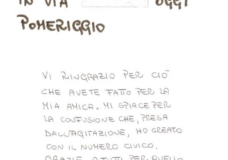 IN VIA OGGI
POMERIGGIO
VI RINGRAZIO PER CIÒ
CHE AVETE FATTO PER LA
MIA AMICA. MI SPIACE PER
LA CONFUSIONE CHE, PRESA
DALL'AGITAZIONE, HO CREATO
CON IL NUMERO CIVICO.
GRAZIE A TUTTI PER QUELLO